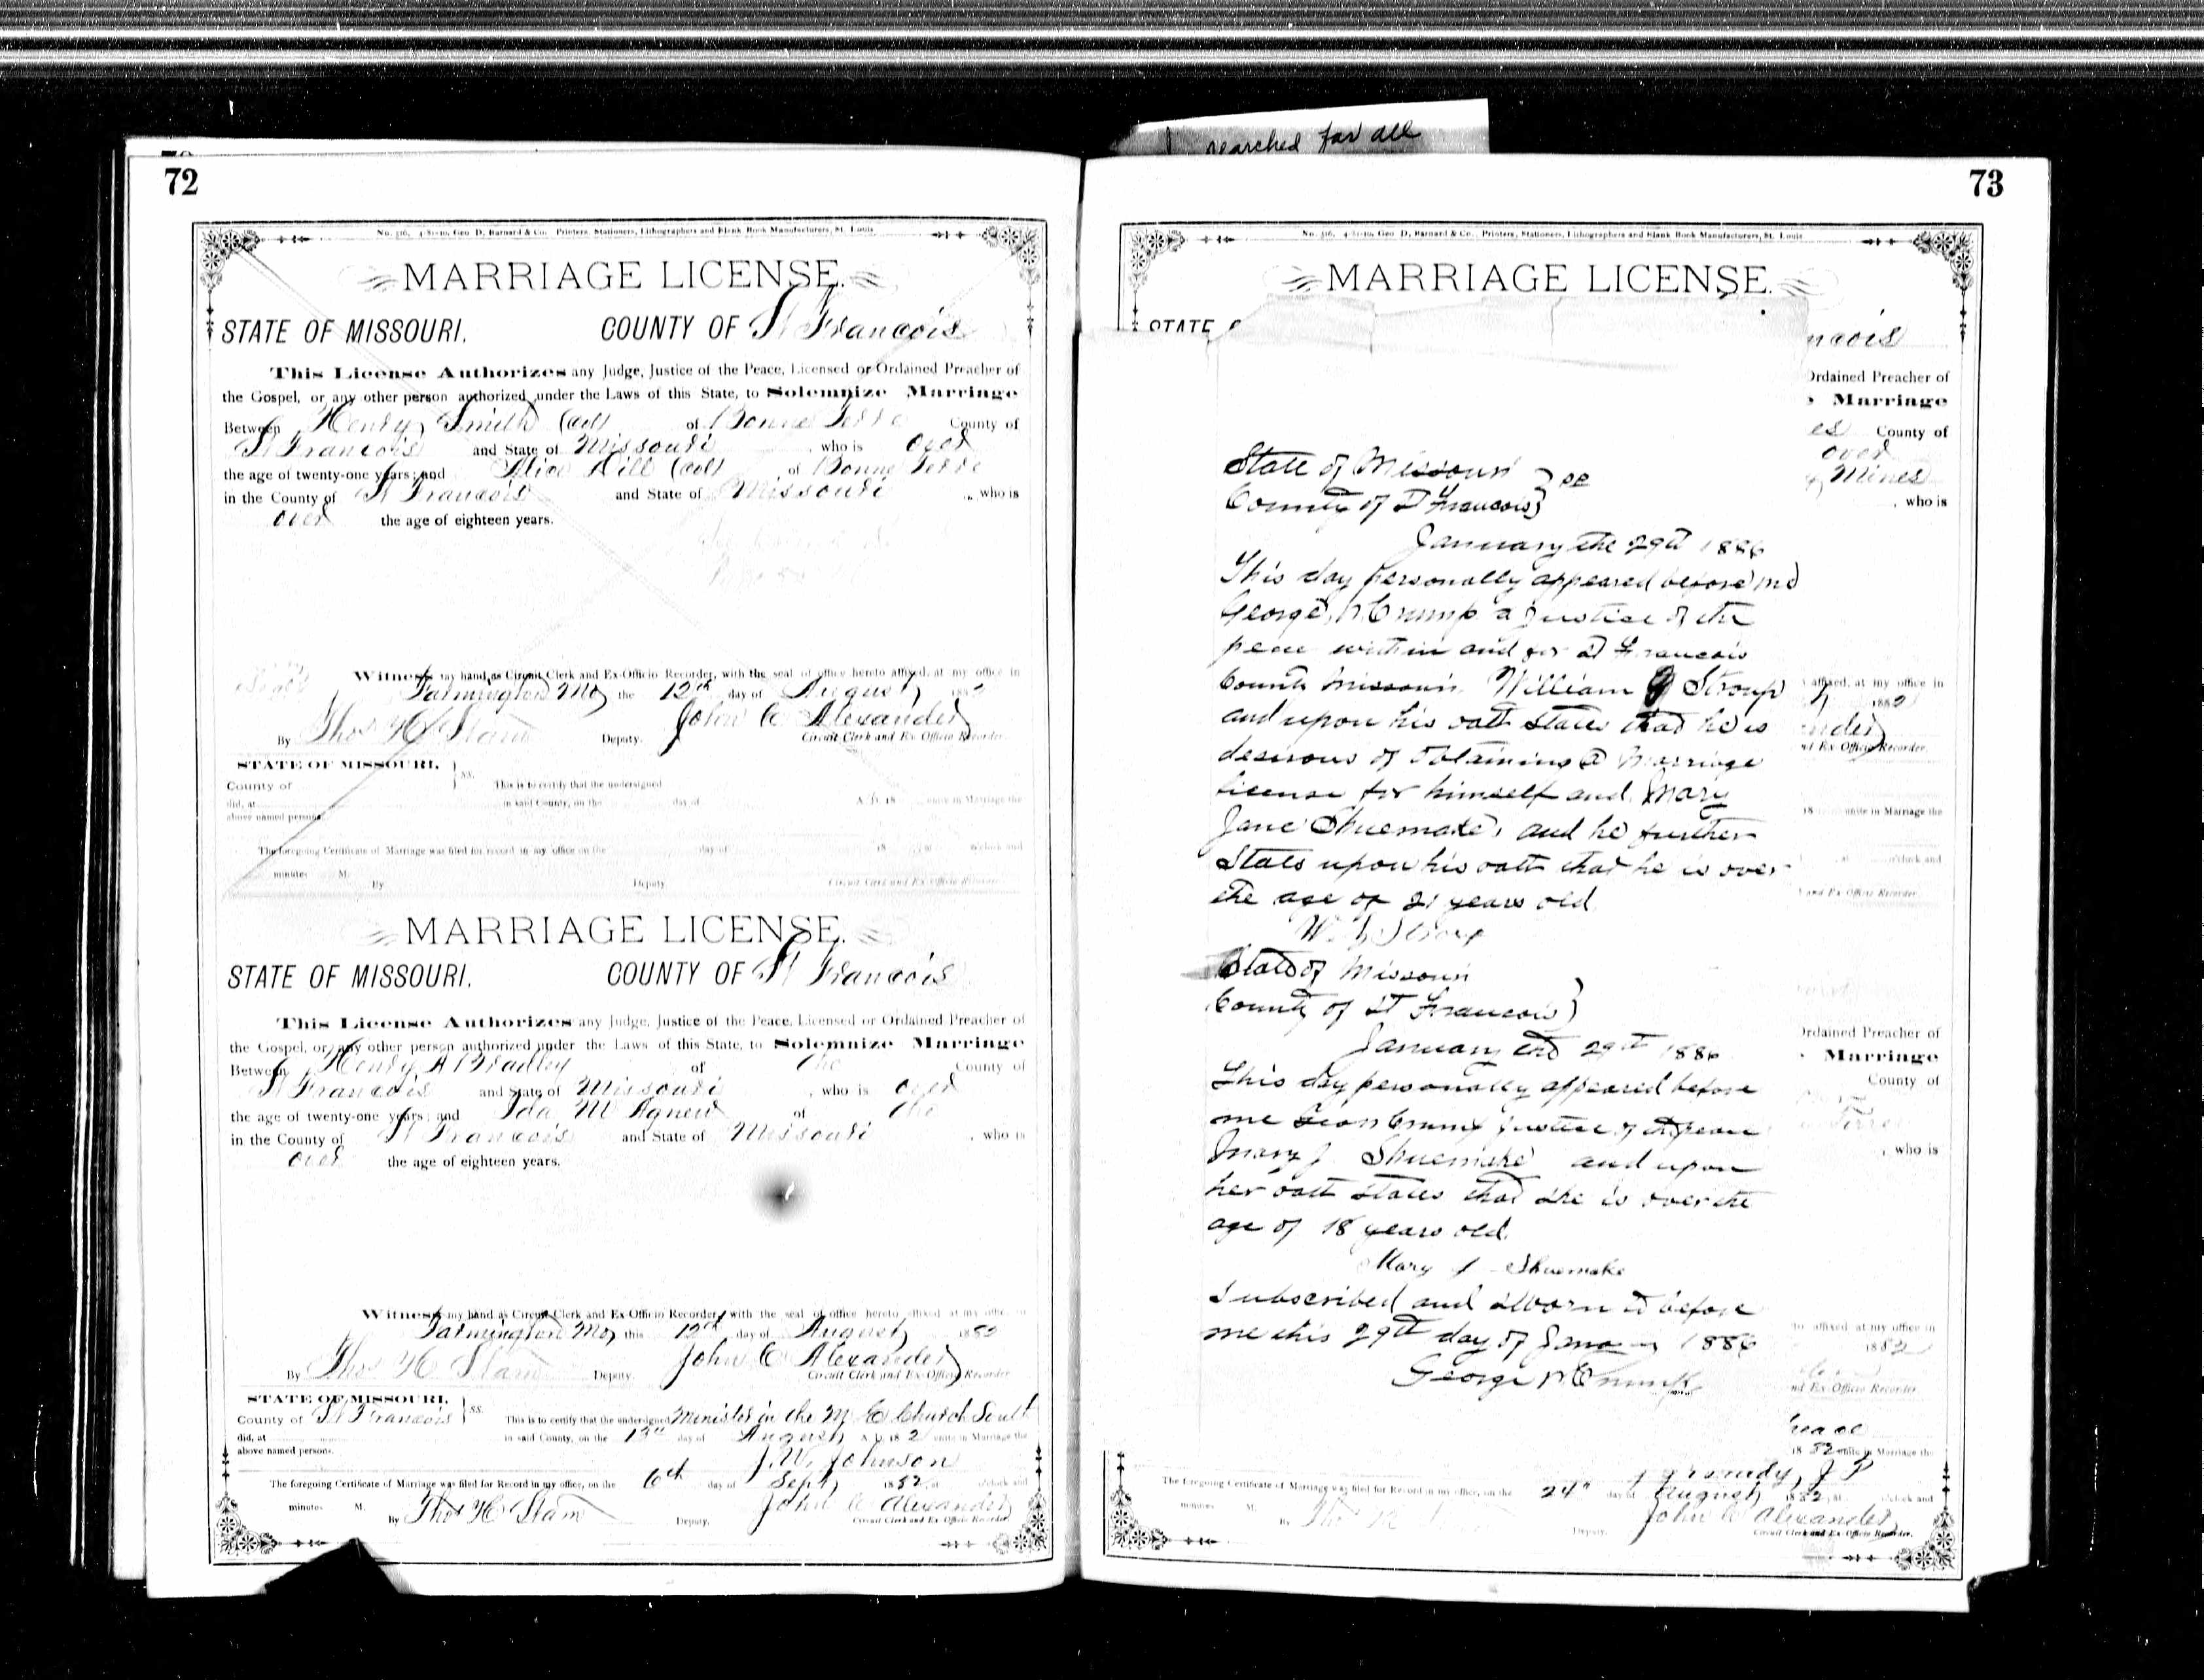 searched for all
72
No. 516, 4-81-10, Geo. D. Barnard & Co., Printers, Stationers, Lithographers and Blank Book Manufacturers, St. Louis
MARRIAGE LICENSE.
STATE OF MISSOURI. COUNTY OF St Francois
This License Authorizes any Judge, Justice of the Peace, Licensed or Ordained Preacher of
the Gospel, or any other person authorized under the Laws of this State, to Solemnize Marriage
Between Henry Smith (Col) of Bonne Terre County of
St Francois and State of Missouri, who is over
the age of twenty-one years; and Alice Hill (Col) of Bonne Terre
in the County of St Francois and State of Missouri, who is
over the age of eighteen years.
Witness my hand as Circuit Clerk and Ex-Officio Recorder, with the seal of office hereto affixed, at my office in
Farmington Mo the 12th day of August 1882
By Thos H Stam Deputy. John C Alexander
Circuit Clerk and Ex-Officio Recorder.
STATE OF MISSOURI, } ss.
County of This is to certify that the undersigned
did, at in said County, on the day of A.D. 18 unite in Marriage the
above named persons.
The foregoing Certificate of Marriage was filed for record in my office on the day of 18 at o'clock and
minutes M.
By Deputy Circuit Clerk and Ex-Officio Recorder
MARRIAGE LICENSE.
STATE OF MISSOURI. COUNTY OF St Francois
This License Authorizes any Judge, Justice of the Peace, Licensed or Ordained Preacher of
the Gospel, or any other person authorized under the Laws of this State, to Solemnize Marriage
Between Henry A Bradley of the County of
St Francois and State of Missouri, who is over
the age of twenty-one years; and Ida M Agnew of the
in the County of St Francois and State of Missouri, who is
over the age of eighteen years.
Witness my hand as Circuit Clerk and Ex-Officio Recorder, with the seal of office hereto affixed at my office in
Farmington Mo this 12th day of August 1882
By Thos H Stam Deputy. John C Alexander
Circuit Clerk and Ex-Officio Recorder
STATE OF MISSOURI, } ss.
County of St Francois This is to certify that the undersigned Minister in the M E Church South
did, at in said County, on the 13th day of August A.D. 1882 unite in Marriage the
above named persons. J. W. Johnson
The foregoing Certificate of Marriage was filed for Record in my office, on the 6th day of Sept 1882, at o'clock and
minutes M. By Thos H Stam Deputy. John C Alexander
Circuit Clerk and Ex-Officio Recorder
73
No. 516, 4-81-10, Geo. D. Barnard & Co., Printers, Stationers, Lithographers and Blank Book Manufacturers, St. Louis
MARRIAGE LICENSE.
STATE
ncois
Ordained Preacher of
Marriage
es County of
over
Mines
, who is
State of Missouri } ss
County of St Francois }
January the 29th 1886
This day personally appeared before me
George N Crump a Justice of the
peace within and for St Francois
County Missouri William J Stroup
and upon his oath states that he is
desirous of obtaining a Marriage
License for himself and Mary
Jane Shuemake, and he further
States upon his oath that he is over
the age of 21 years old
W. J Stroup
State of Missouri
County of St Francois }
January the 29th 1886
This day personally appeared before
me Geo N Crump Justice of the peace
Mary J. Shuemake and upon
her oath states that she is over the
age of 18 years old.
Mary J Shuemake
Subscribed and sworn to before
me this 29th day of January 1886
George N Crump
affixed, at my office in
1882
nder
nd Ex-Officio Recorder.
18 unite in Marriage the
o'clock and
and Ex-Officio Recorder.
Ordained Preacher of
Marriage
County of
Terre
, who is
to affixed at my office in
1882
nd Ex-Officio Recorder
Peace
1882 unite in Marriage the
J P
The foregoing Certificate of Marriage was filed for Record in my office, on the 24th day of August 1882, at o'clock and
minutes M. By Deputy. John C Alexander
Circuit Clerk and Ex-Officio Recorder.